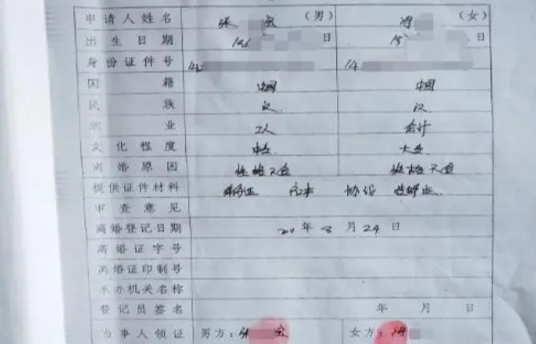 申请人姓名 张 (男) (女)
出生日期 日 日
身份证件号
国籍 中国 中国
民族 汉 汉
职业 工人 会计
文化程度 中专 大专
离婚原因 性格不合 性格不合
提供证件材料 户口本 协议
审查意见
离婚登记日期 20 年 3 月 24 日
离婚证字号
离婚证印制号
承办机关名称
登记员签名 年 月 日
当事人领证 男方: 张 女方: